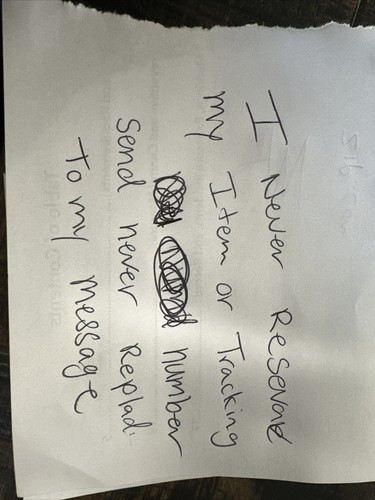 I Never Reservae
my Item or Tracking
number
Send never Replad:
To my message